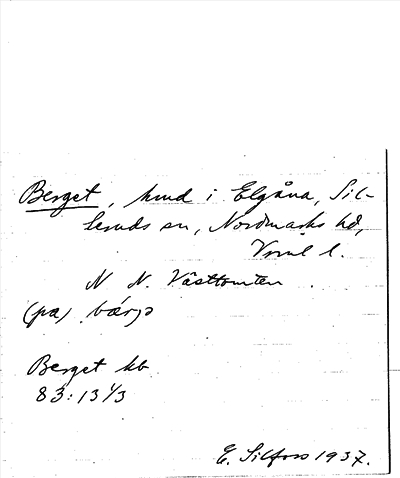 Berget, hmd i Elgåna, Sil-
leruds sn, Nordmarks hd,
Vrml l.
N N. Västtomten
(pa) bærjə
Berget kb
83:13 1/3
E. Silfors 1937.